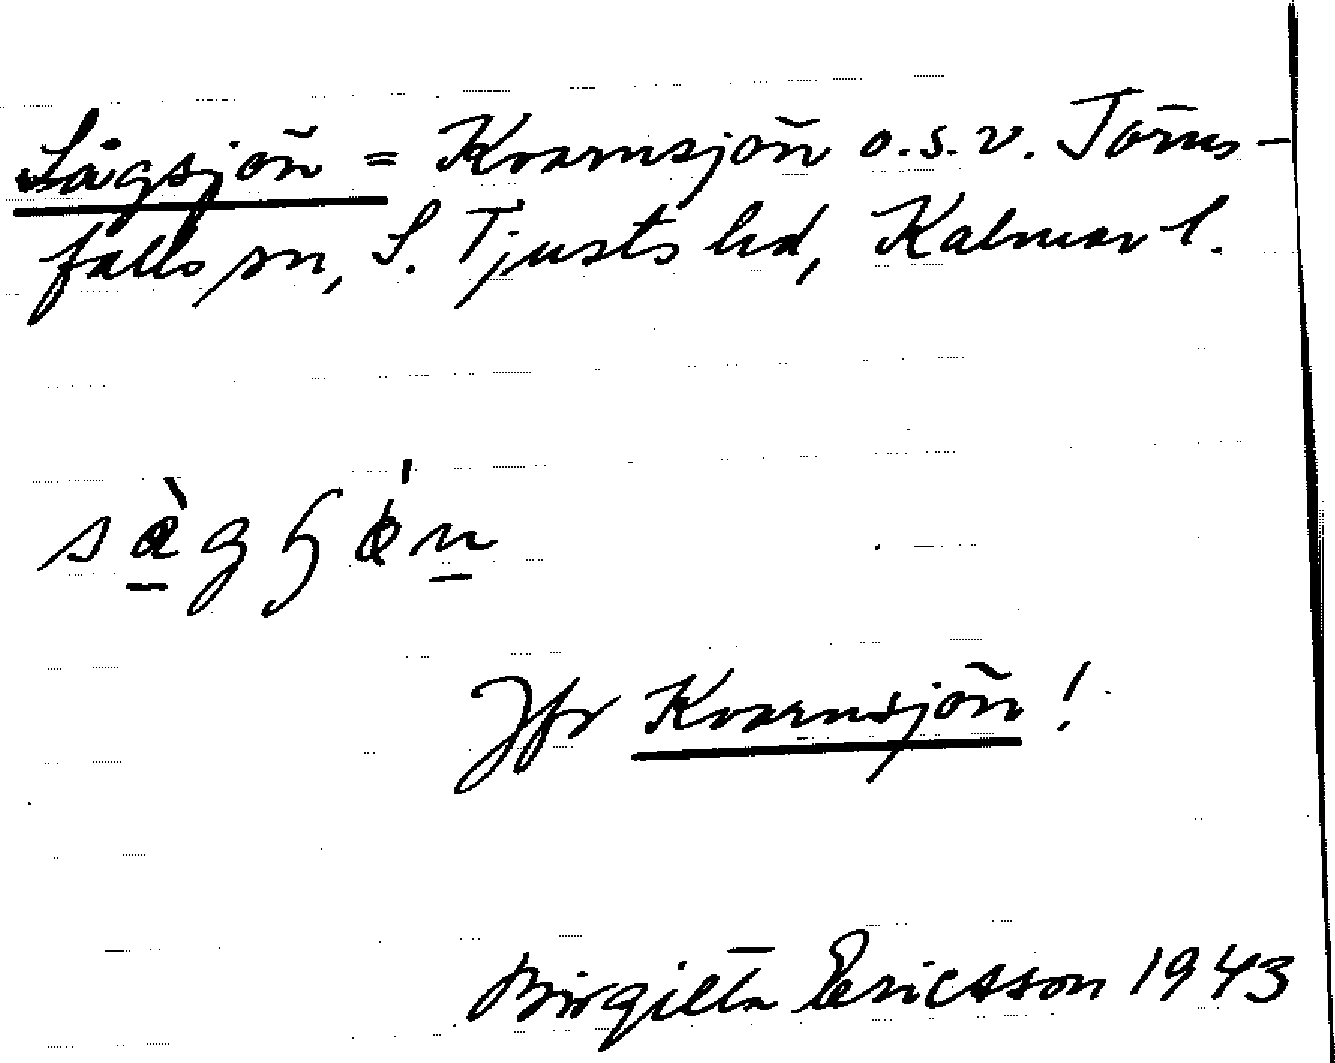 Sågsjön = Kvarnsjön o.s.v. Törns-
falls sn, S. Tjusts hd, Kalmar l.
Jfr Kvarnsjön!
Birgitta Ericsson 1943